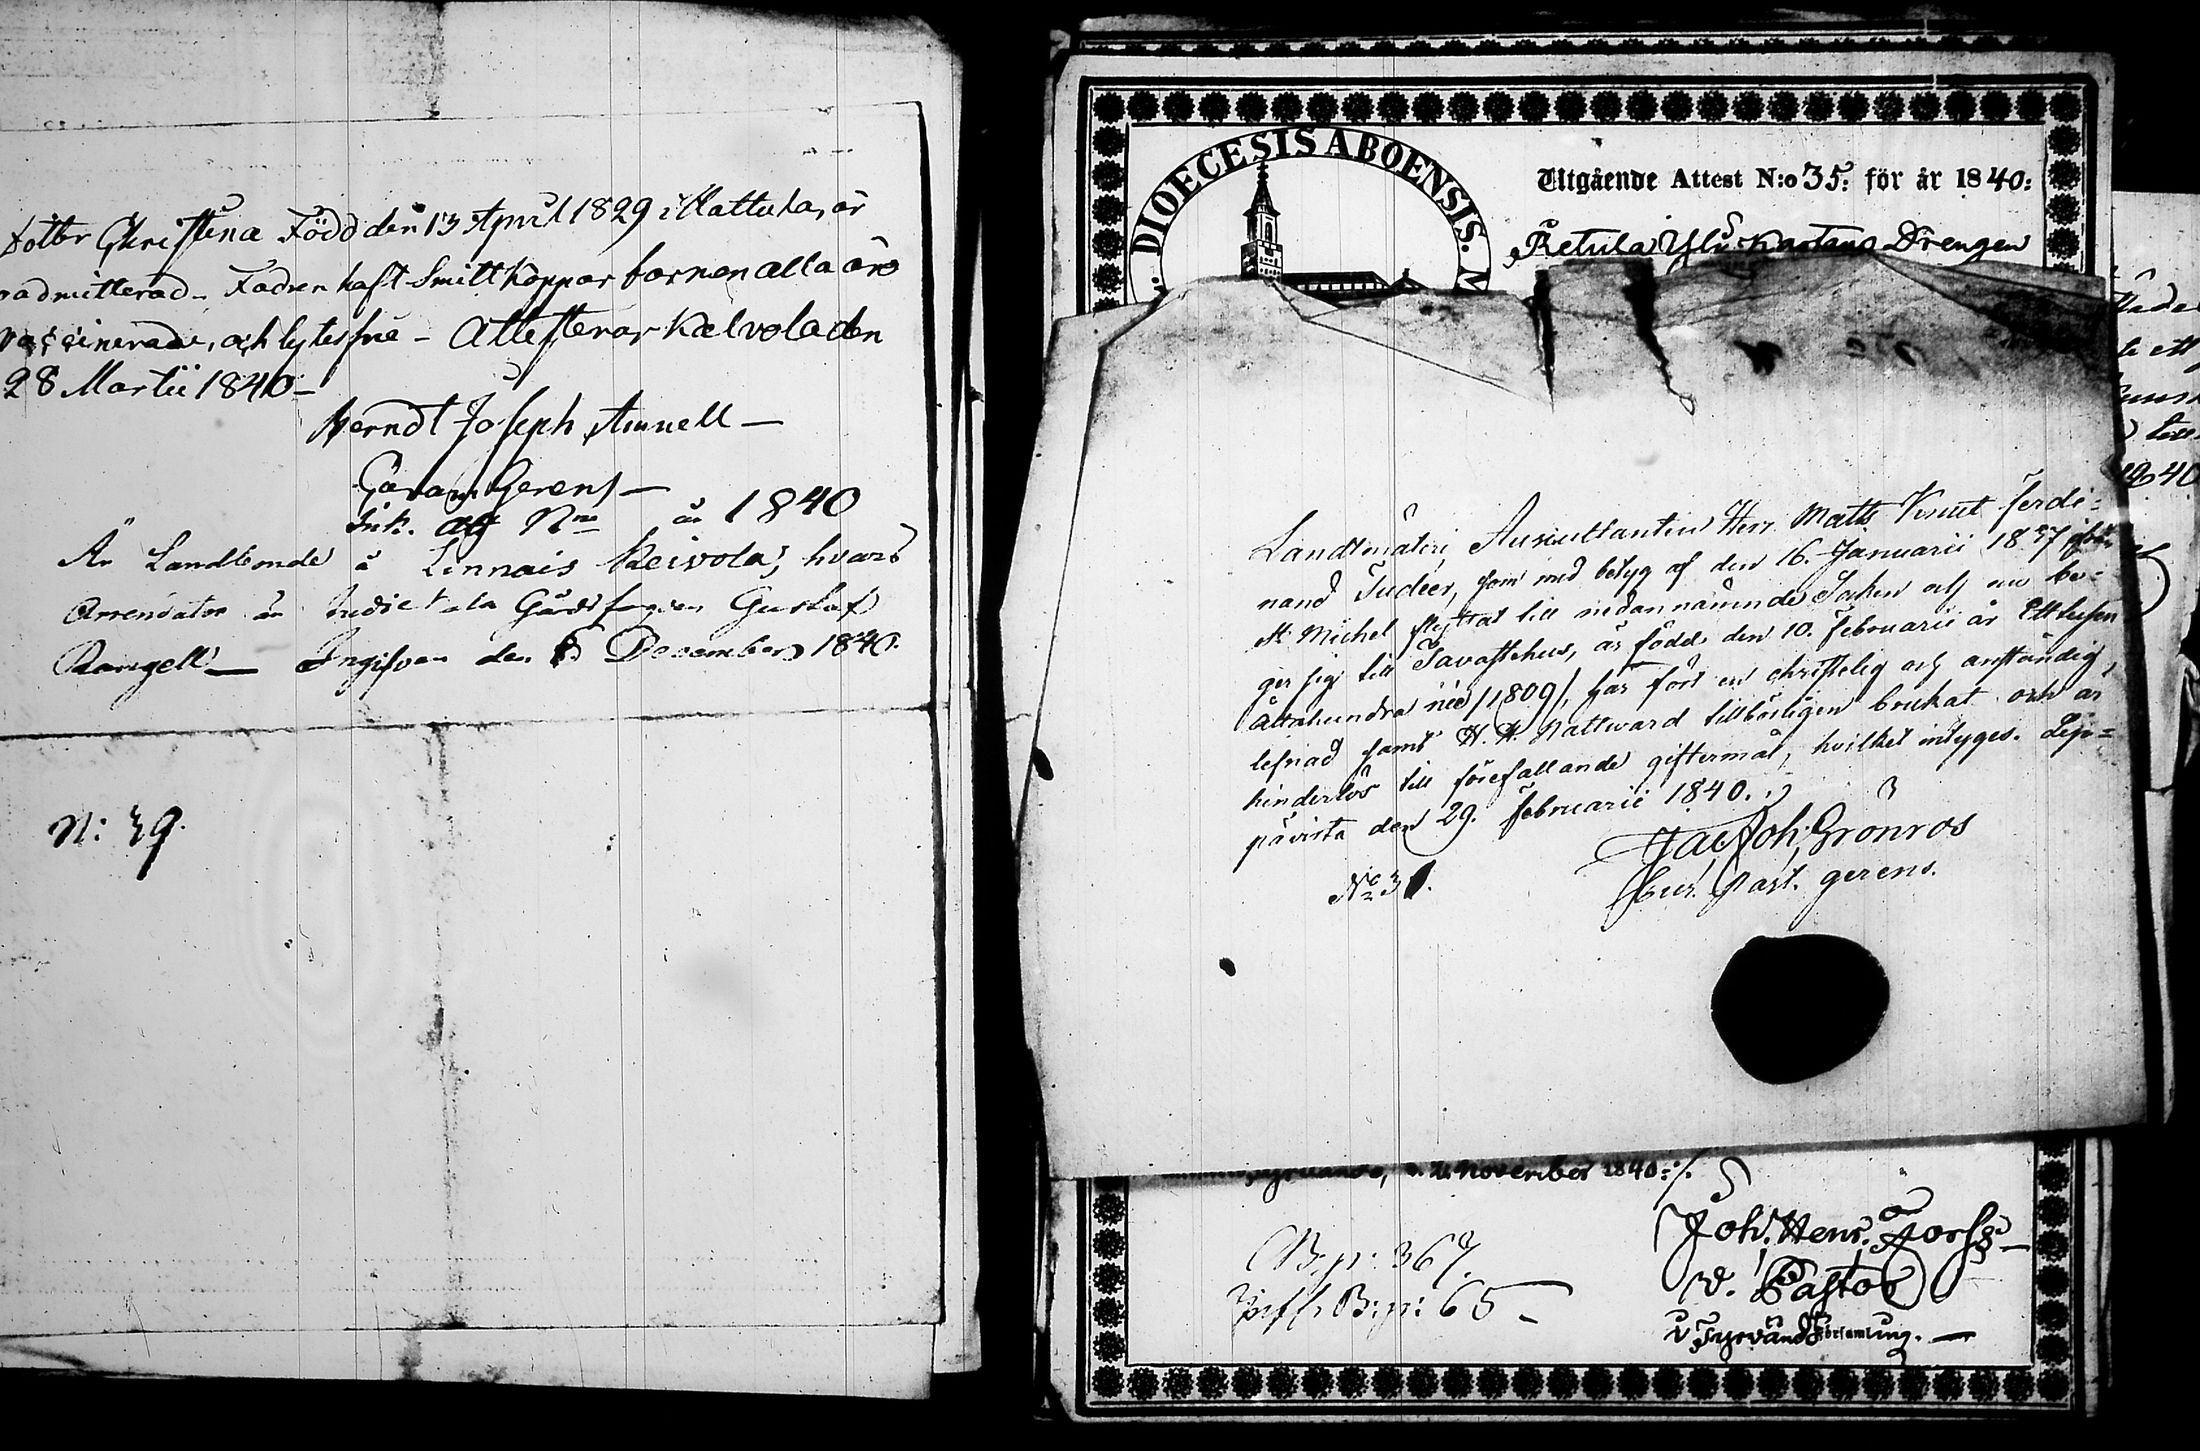 dotter Christina Född den 13 April 1829 i Kattula, är
oadmitterad. Fadren haft Smittkoppor barnen alla äro
vaccinerade, och lytesfrie – Attesterar Kalvola den
28 Martii 1840 –
Berndt Joseph Amnell –
Gerens –
Ink. att Nro år 1840
Är Landbonde å Linnais Keivola, hvars
Arrendator är Gustaf
Rangell — Ingifven den December 1840.
N: 39.
DIOECESIS ABOENSIS.
Utgående Attest N:o 35: för år 1840:
Retula Yli Drengen
Landtmäteri Auscultanten Herr Matts Knut Ferdi-
nand Tudeer, som med betyg af den 16. Januarii 1837
St. Michel flyttat till nedannämnde Socken och nu be-
ger sig till Tavastehus, är född den 10. Februarii år Ett tusen
Åttahundra nio /1809/, har fört en christelig och anständig
lefnad samt H. H. Nattward tillbörligen brukat och är
hinderlös till förefallande giftermål, hvilket intyges. Lep=
pävirta den 29. Februarii 1840.
Jac. Joh. Grönros
past. gerens.
November 1840 ./.
B. p: 367.
Infl. B: p: 65 –
Joh. Henr.
v. Pastor
i Tyrvändö Församling. —